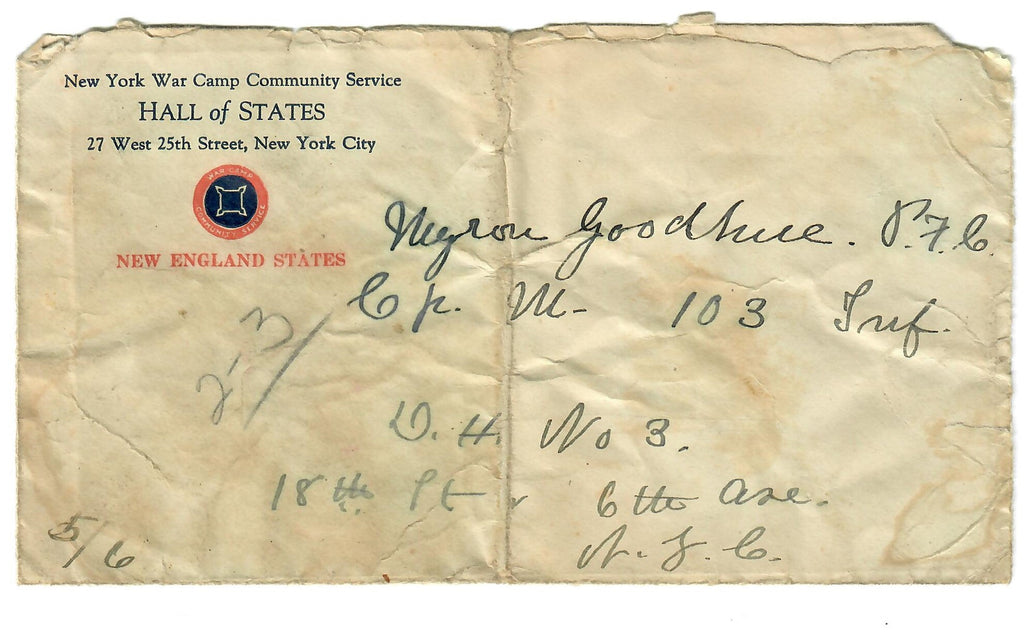 New York War Camp Community Service
HALL of STATES
27 West 25th Street, New York City
WAR CAMP
COMMUNITY SERVICE
NEW ENGLAND STATES
Myron Goodhue. P.F.C.
Cp. M- 103 Inf.
D. H. No 3.
18th St 6th Ave.
N.Y.C.
5/6